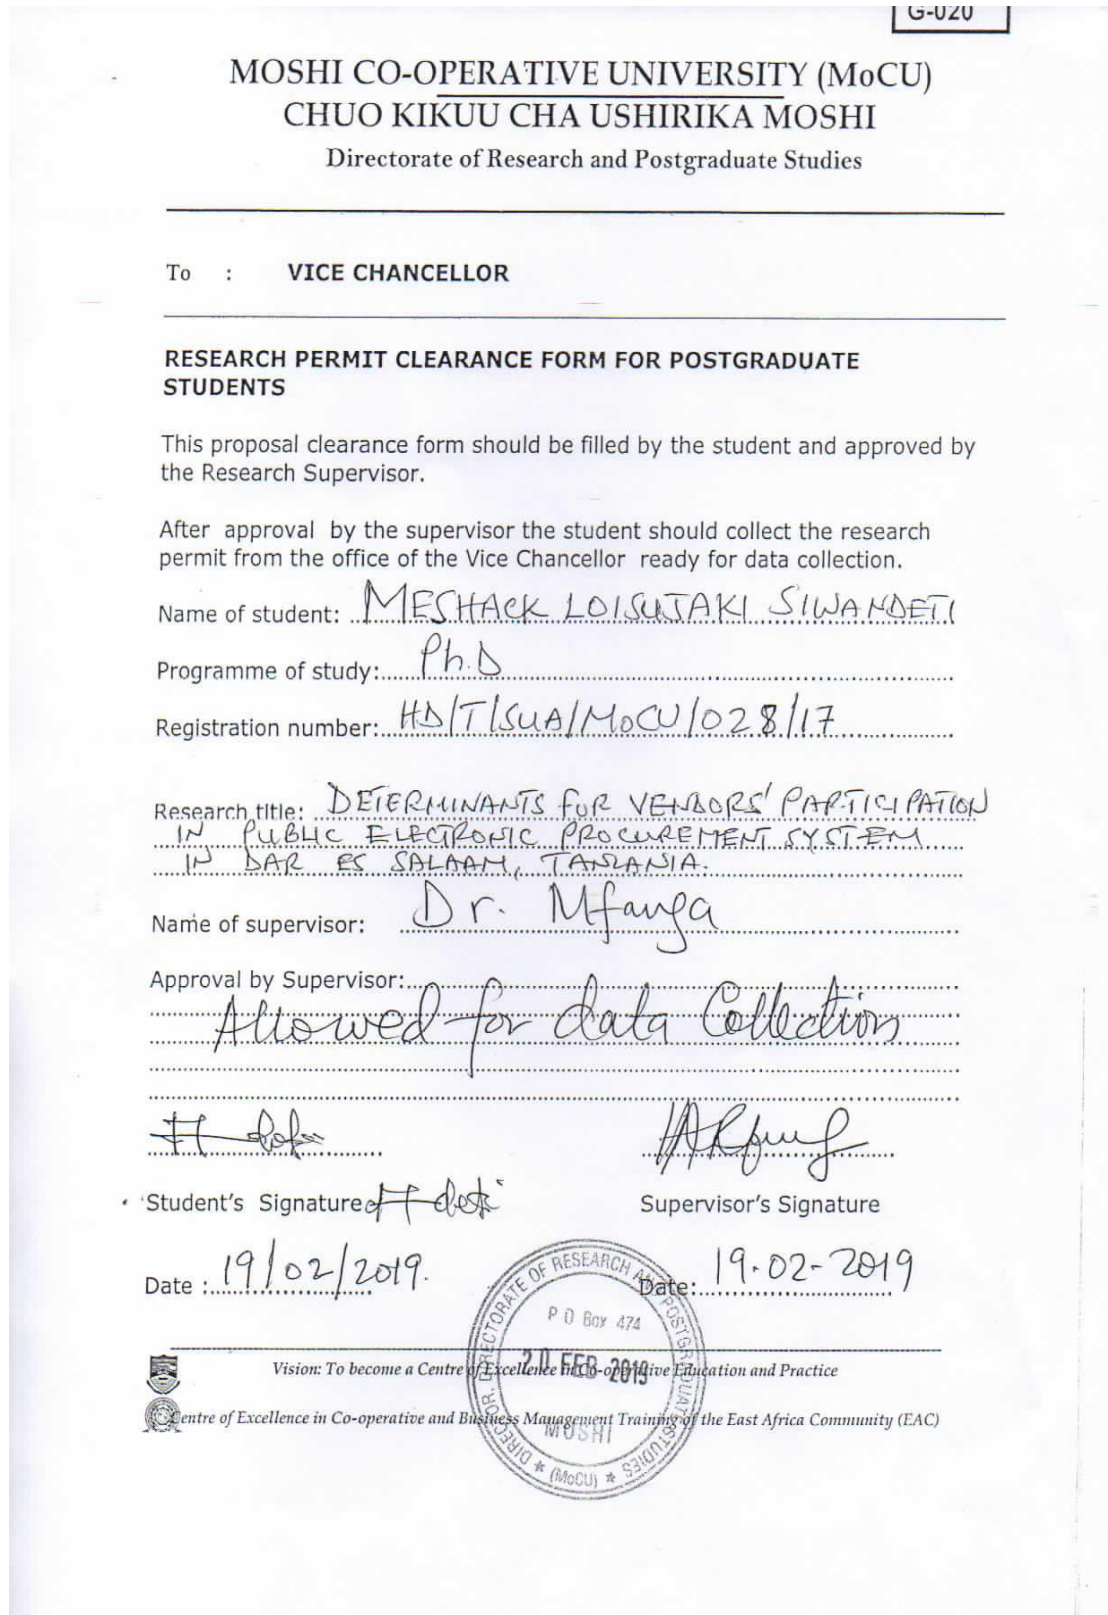 G-020
MOSHI CO-OPERATIVE UNIVERSITY (MoCU)
CHUO KIKUU CHA USHIRIKA MOSHI
Directorate of Research and Postgraduate Studies
To : VICE CHANCELLOR
RESEARCH PERMIT CLEARANCE FORM FOR POSTGRADUATE
STUDENTS
This proposal clearance form should be filled by the student and approved by
the Research Supervisor.
After approval by the supervisor the student should collect the research
permit from the office of the Vice Chancellor ready for data collection.
Name of student: MESHACK LOISUJAKI SIWANDETI
Programme of study: Ph.D
Registration number: HD/T/SUA/MoCU/028/17
Research title: DETERMINANTS FOR VENDORS' PARTICIPATION
IN PUBLIC ELECTRONIC PROCUREMENT SYSTEM
IN DAR ES SALAAM, TANZANIA.
Name of supervisor: Dr. Mfanga
Approval by Supervisor:
Allowed for data Collection
Student's Signature Supervisor's Signature
Date : 19/02/2019. Date: 19-02-2019
DIRECTOR. DIRECTORATE OF RESEARCH AND POSTGRADUATE STUDIES
P O Box 474
20 FEB 2019
MOSHI
* (MoCU) *
Vision: To become a Centre of Excellence in Co-operative Education and Practice
Centre of Excellence in Co-operative and Business Management Training of the East Africa Community (EAC)